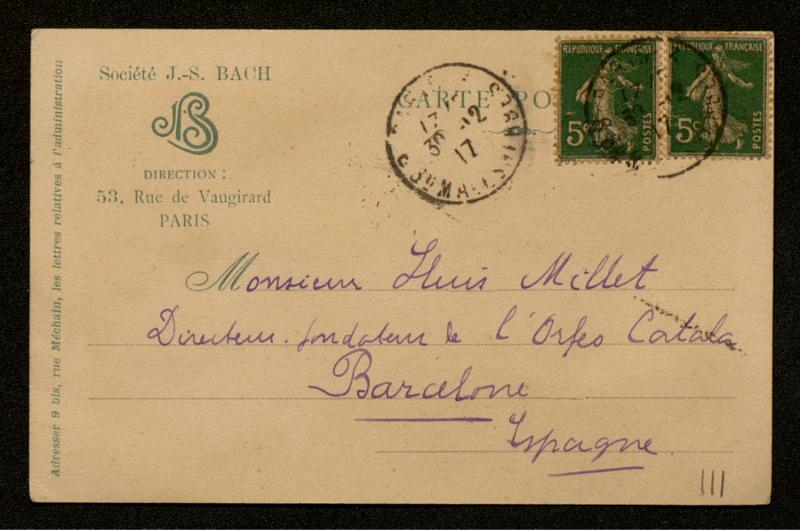 Société J.-S. BACH
JSB
DIRECTION :
53, Rue de Vaugirard
PARIS
Adresser 9 bis, rue Méchain, les lettres relatives à l'administration
CARTE PO
RÉPUBLIQUE FRANÇAISE
5c
POSTES
RÉPUBLIQUE FRANÇAISE
5c
POSTES
17
30 -12
17
Monsieur Lluis Millet
Directeur-fondateur de l'Orfeo Catala
Barcelone
Espagne.
III